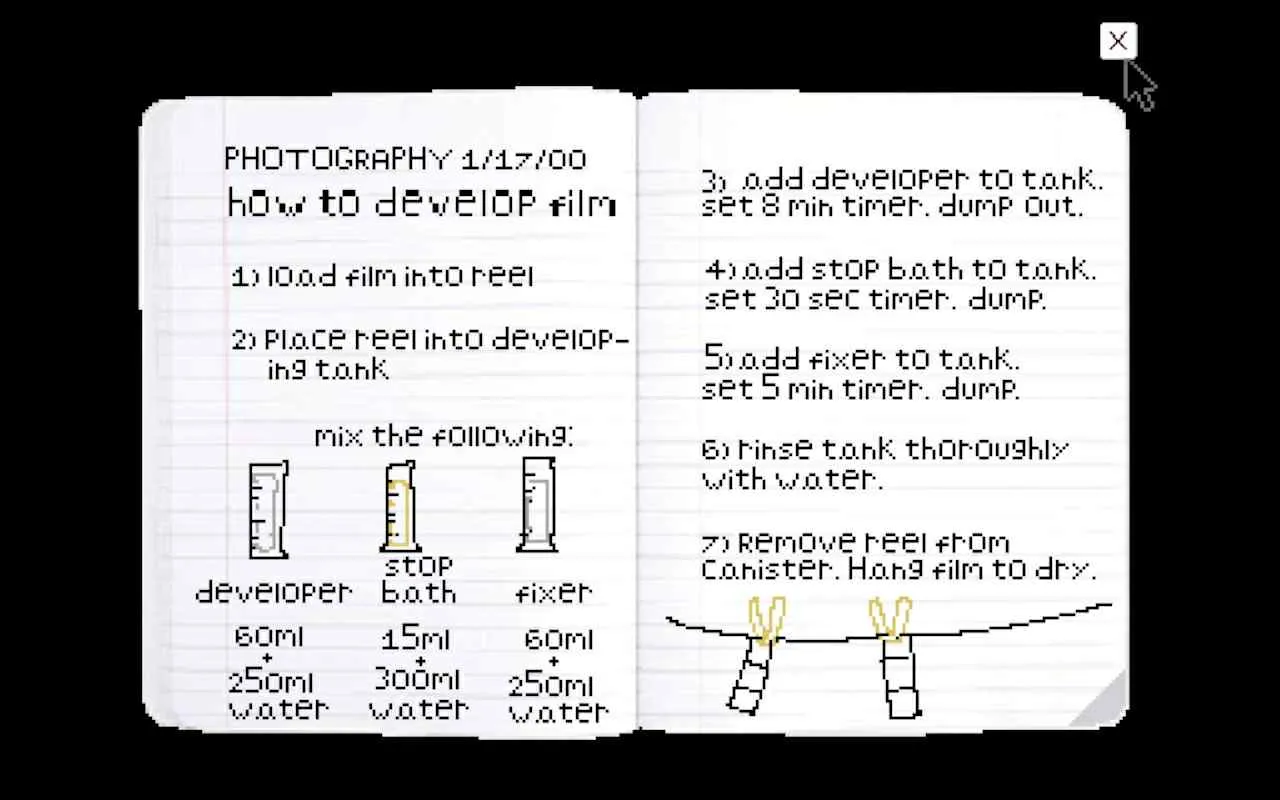 PHOTOGRAPHY 1/17/00
how to develop film
1) load film into reel
2) Place reel into develop-
ing tank
mix the following:
developer
60ml
+
250ml
water
stop
bath
15ml
+
300ml
water
fixer
60ml
+
250ml
water
X
3) add developer to tank.
set 8 min timer. dump out.
4) add stop bath to tank.
set 30 sec timer. dump.
5) add fixer to tank.
set 5 min timer. dump.
6) rinse tank thoroughly
with water.
7) Remove reel from
canister. Hang film to dry.